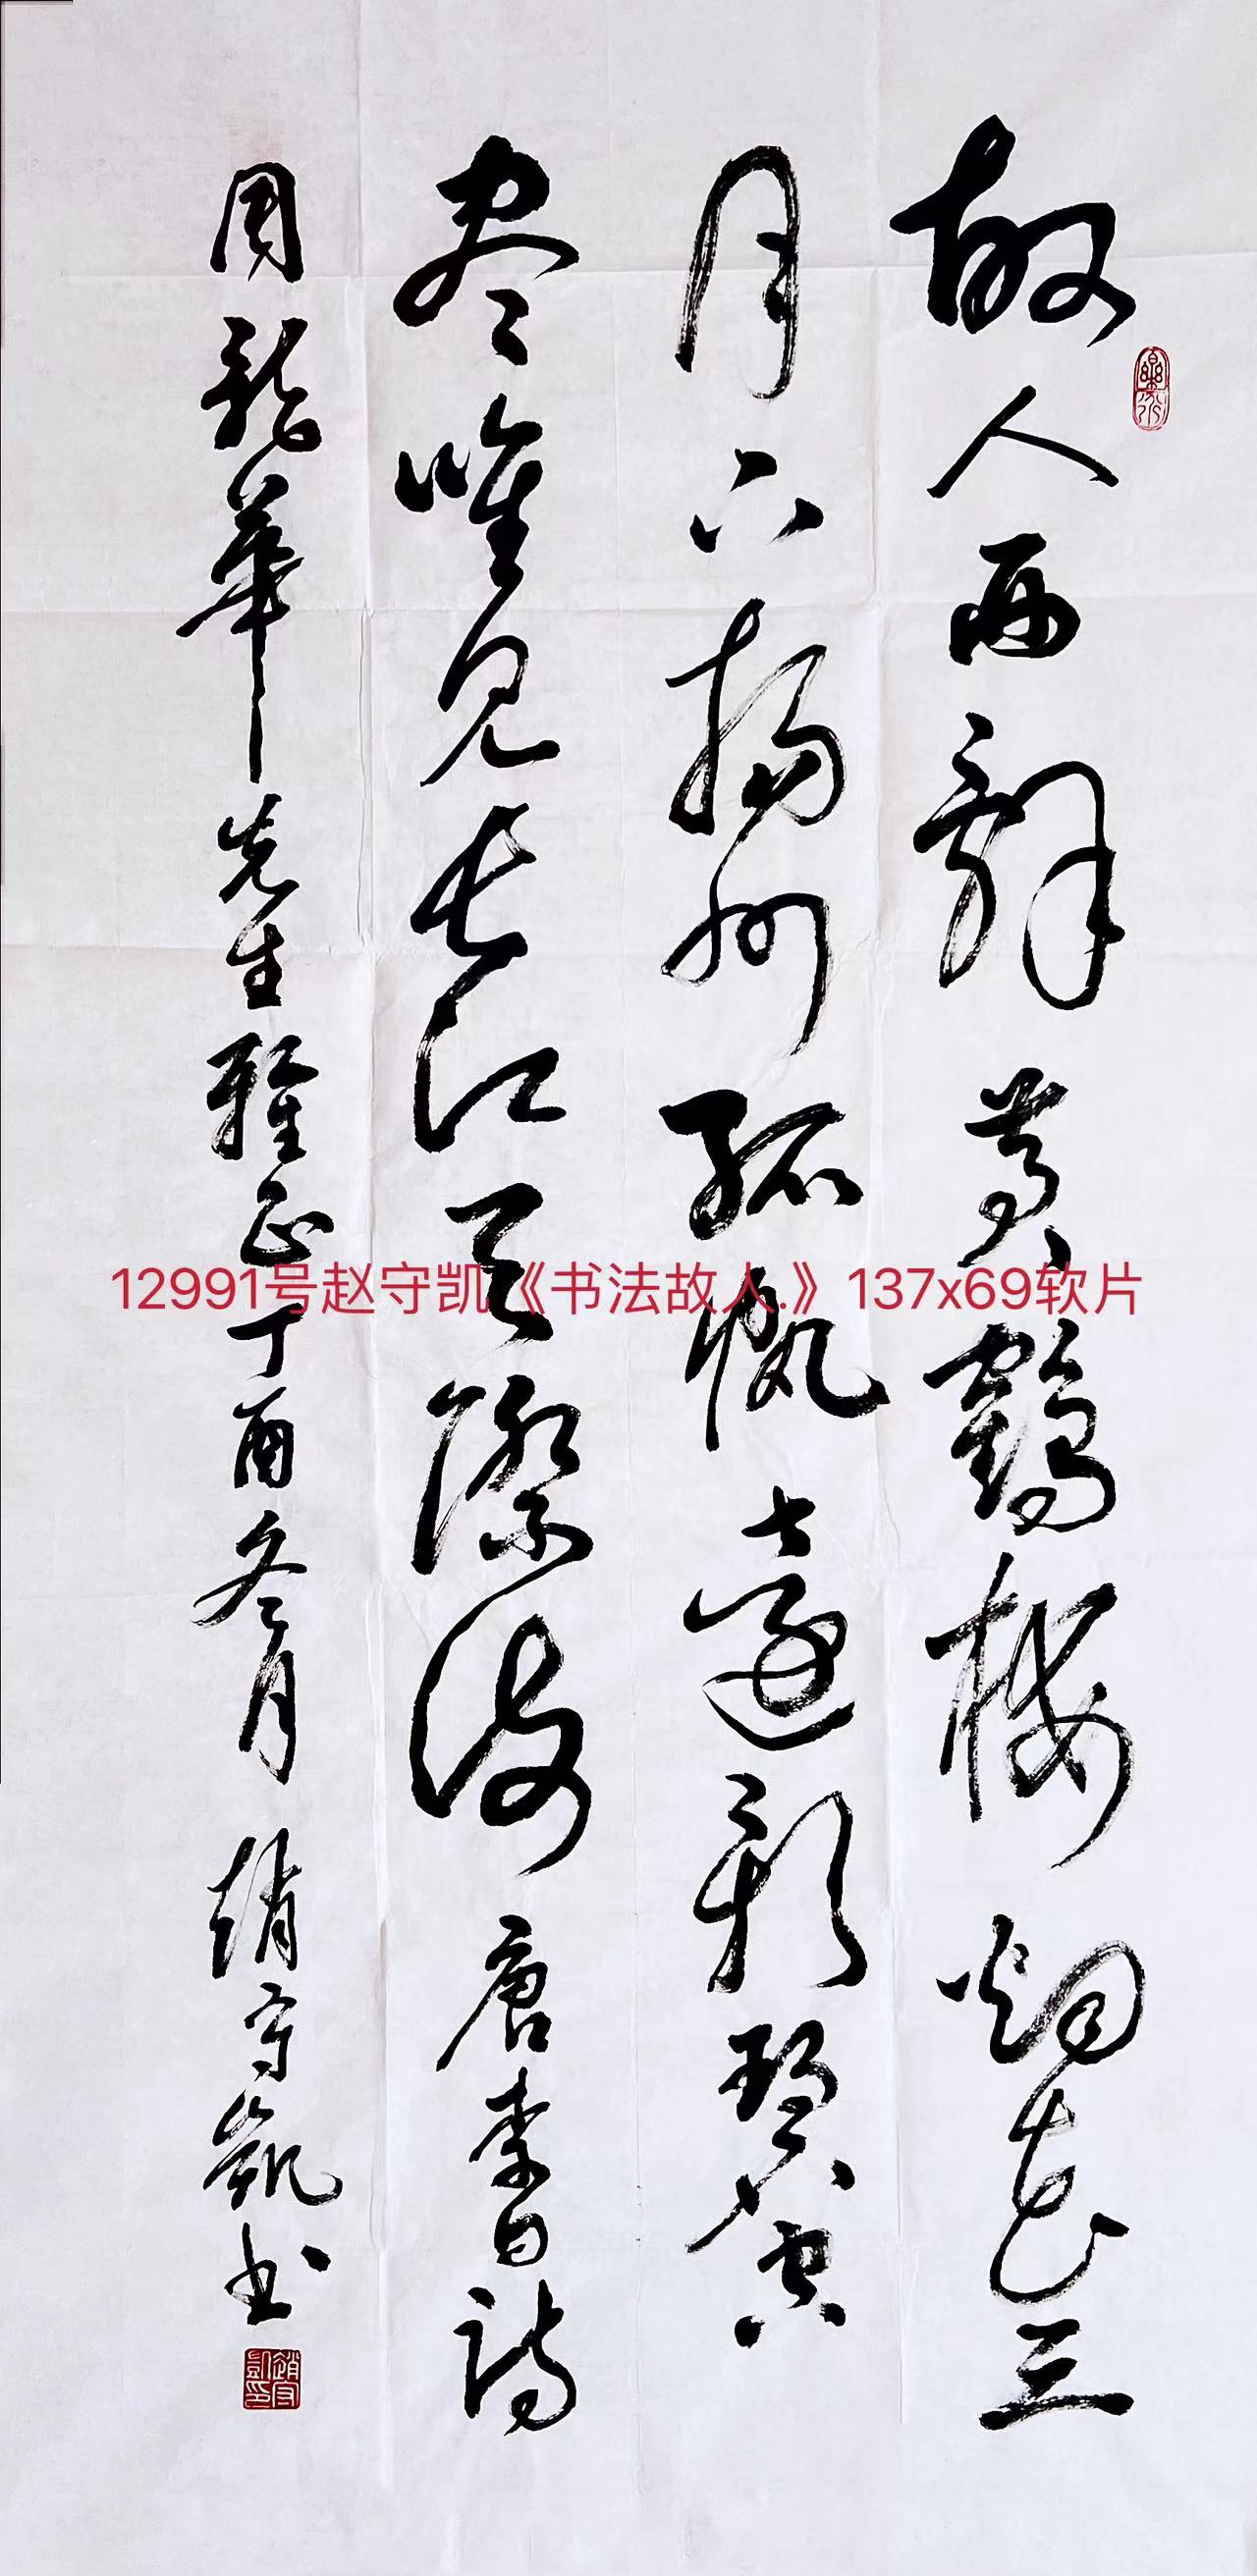 故人西辭黃鶴樓烟花三
月下揚州孤帆遠影碧空
尽唯見長江天際流唐李白詩
周龍華先生雅正丁酉冬月趙守凱书
12991号赵守凯《书法故人.》137x69软片
趙守凱印